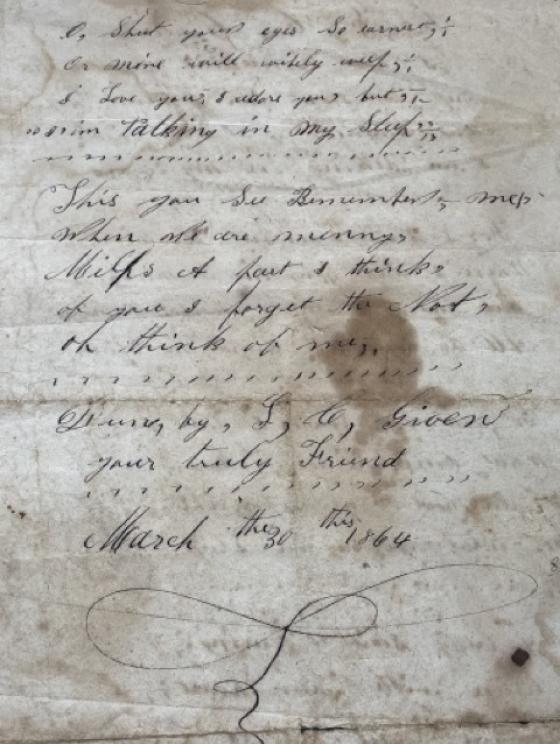 O, Shut your eyes So earnest,
Or mine will witely weep,
I Love you, I adore you, but,
I'm talking in my Sleep
This you See Remember, me,
When we are menny,
Milės A part I think,
of you I forget the Not,
oh think of me,
Dun, by, L, C, Given
your truly Friend
March the 30 this 1864